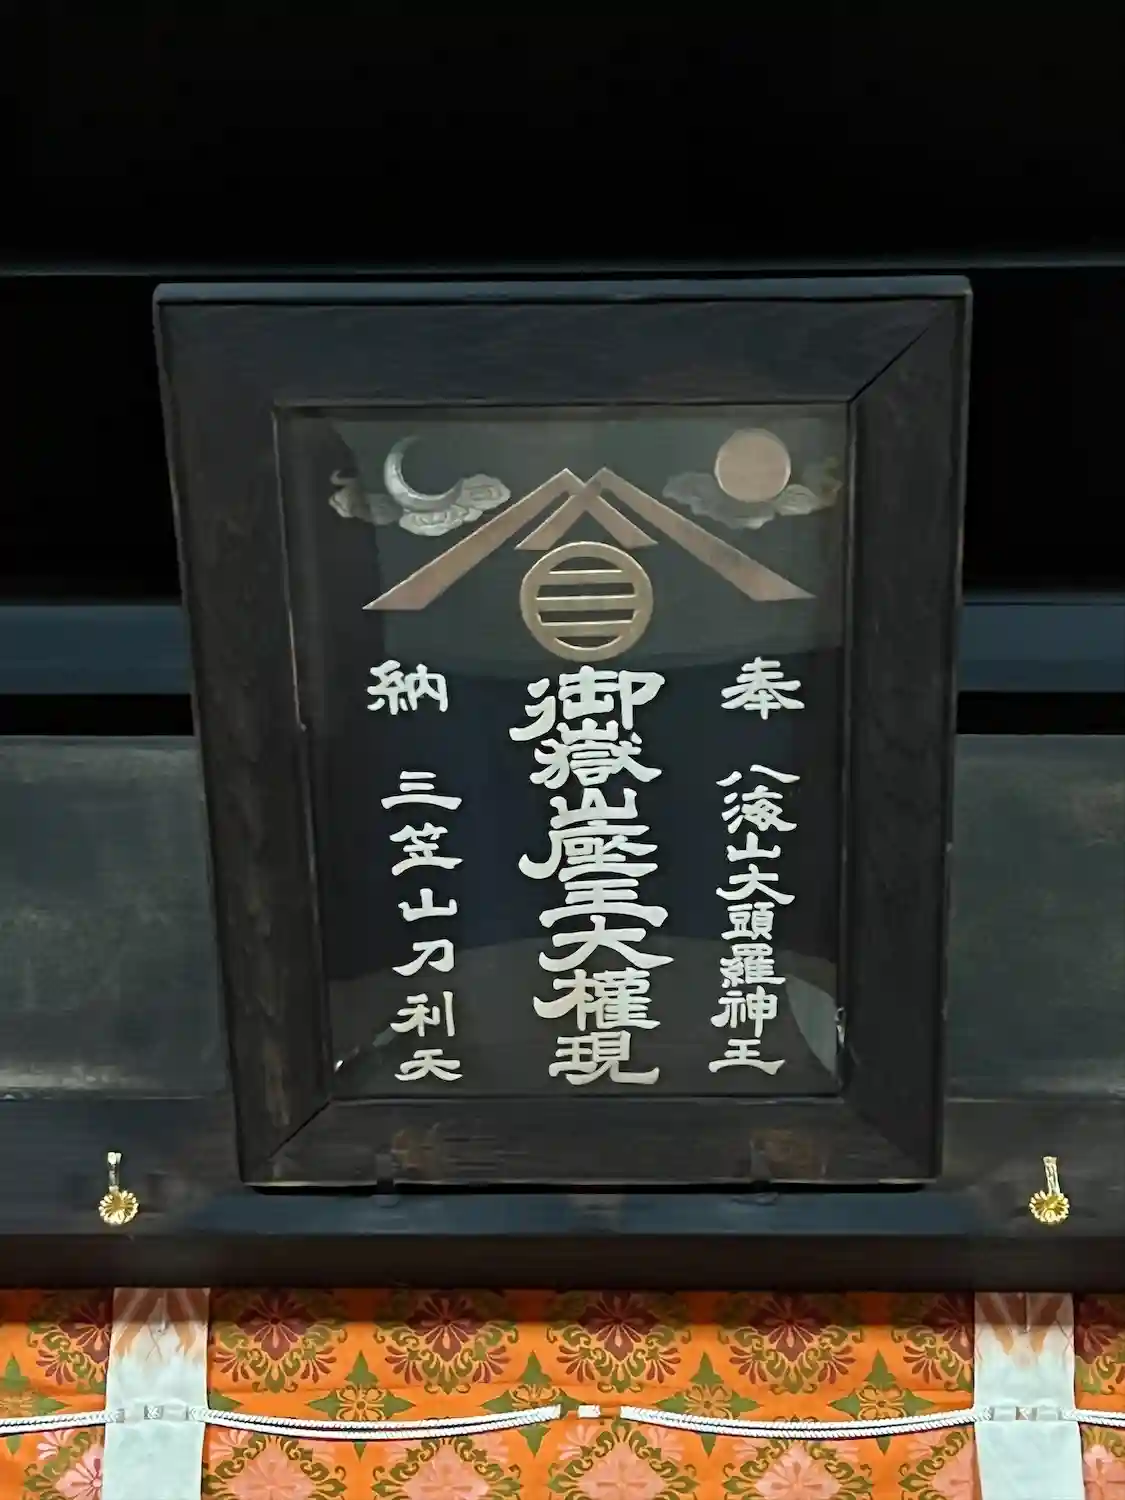 奉
八海山大頭羅神王
御嶽山座王大權現
納
三笠山刀利天